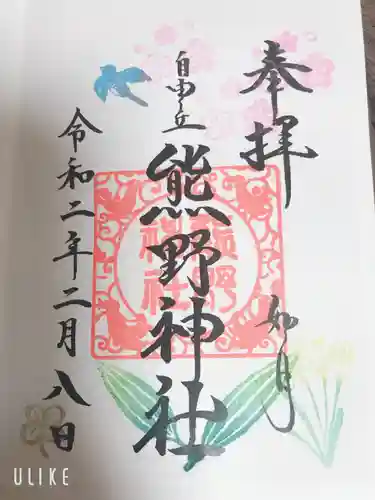 奉拝
如月
自由ヶ丘
熊野神社
熊野
神社
令和二年二月八日
ULIKE